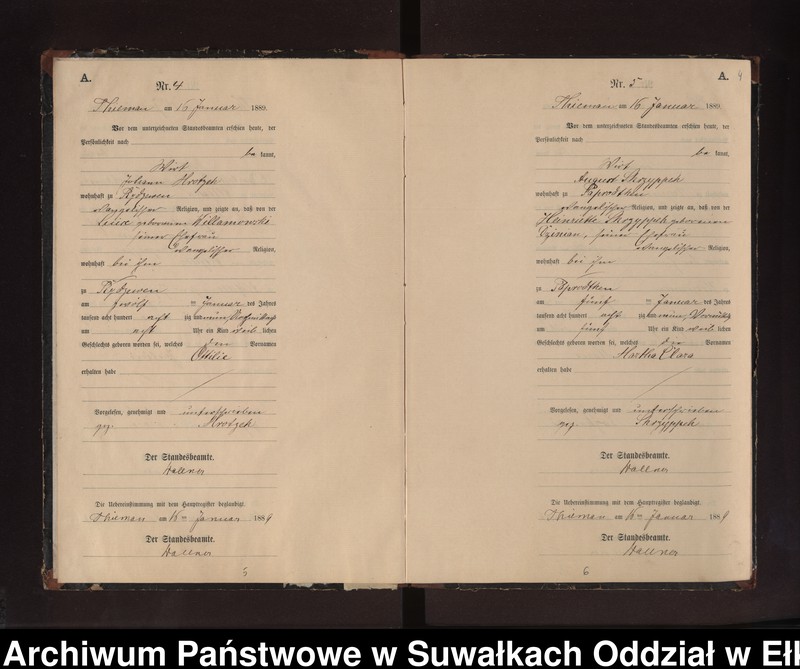 A.
Nr. 4
Thierman am 16 Januar 1889.
Vor dem unterzeichneten Standesbeamten erschien heute, der
Persönlichkeit nach
be kannt,
Wirt
Johann Mrotzek
wohnhaft zu Rydzewen
evangelischer Religion, und zeigte an, daß von der
geborenen Willamowski
seiner Ehefrau
evangelischer Religion,
wohnhaft bei ihm
zu Rydzewen
am zwölf ten Januar des Jahres
tausend acht hundert acht zig und neun, Nachmittags
um acht Uhr ein Kind weib lichen
Geschlechts geboren worden sei, welches den Vornamen
Ottilie
erhalten habe
Vorgelesen, genehmigt und unterschrieben
gez. Mrotzek
Der Standesbeamte.
Wallner
Die Uebereinstimmung mit dem Hauptregister beglaubigt.
am 16 ten Januar 1889
Der Standesbeamte.
Wallner
5
A.
9
Nr. 5
Thierman am 16 Januar 1889.
Vor dem unterzeichneten Standesbeamten erschien heute, der
Persönlichkeit nach
be kannt,
Wirt
August Skrzyppek
wohnhaft zu Paprodtken
evangelischer Religion, und zeigte an, daß von der
Henriette Skrzyppek geborenen
seiner Ehefrau
evangelischer Religion,
wohnhaft bei ihm
zu Paprodtken
am fünf ten Januar des Jahres
tausend acht hundert acht zig und neun, Vormittags
um fünf Uhr ein Kind weib lichen
Geschlechts geboren worden sei, welches die Vornamen
Martha Clara
erhalten habe
Vorgelesen, genehmigt und unterschrieben
gez. Skrzyppek
Der Standesbeamte.
Wallner
Die Uebereinstimmung mit dem Hauptregister beglaubigt.
am 16 ten Januar 1889
Der Standesbeamte.
Wallner
6
Archiwum Państwowe w Suwałkach Oddział w Ełk